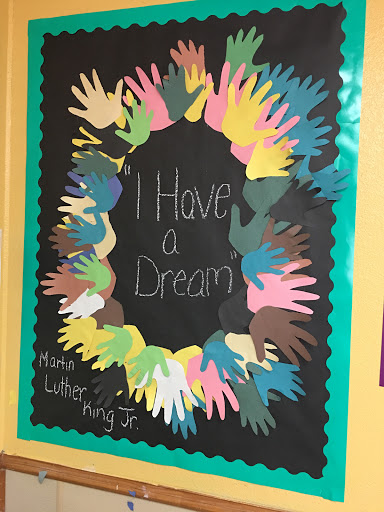 "I Have
a
Dream"
Martin
Luther
King Jr.